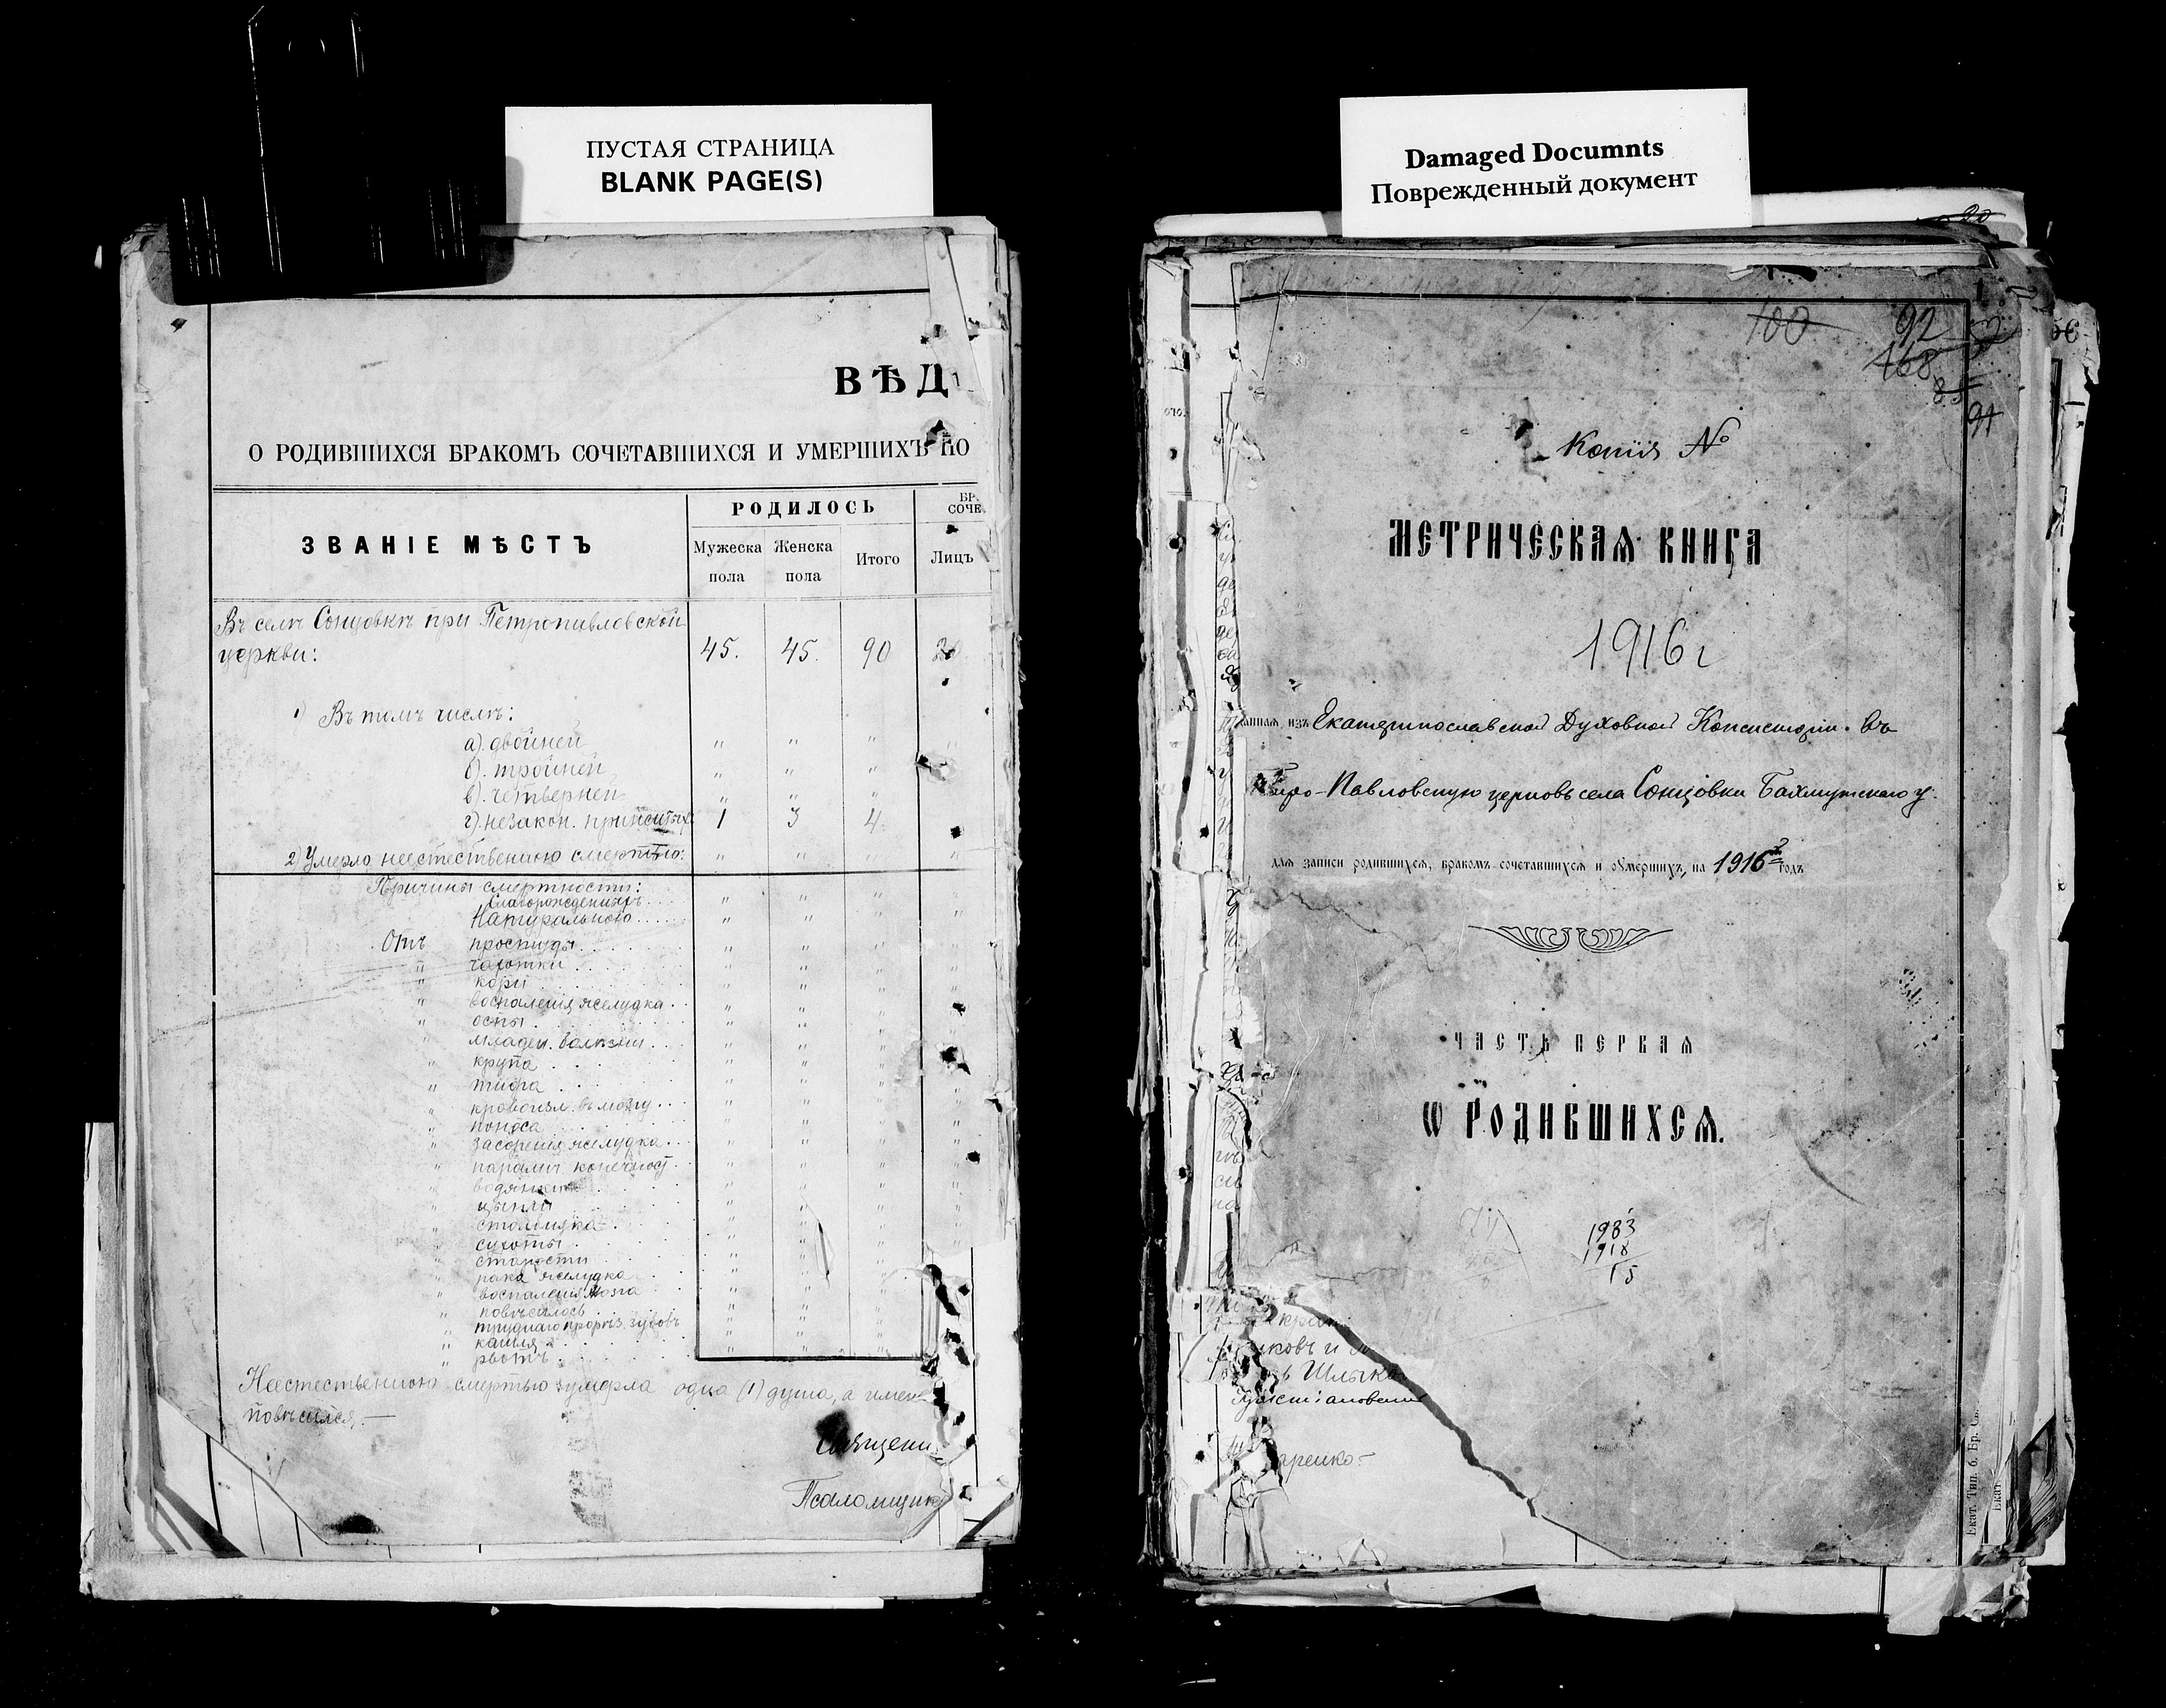 ПУСТАЯ СТРАНИЦА
BLANK PAGE(S)
ВѢД
О РОДИВШИХСЯ БРАКОМЪ СОЧЕТАВШИХСЯ И УМЕРШИХЪ ПО
ЗВАНІЕ МѢСТЪ
РОДИЛОСЬ
БР.
СОЧЕ
Мужеска пола
Женска пола
Итого
Лицъ
Въ селѣ Сонцовкѣ при Петропавловской
церкви:
45. 45. 90
1) Въ томъ числѣ:
а). двойней " " "
б). тройней " " "
в). четверней " " "
г). незакон. 1 3 4
2) Умерло неестественною смертью: " " "
Причины смертности:
Слаборожденныхъ
Натуральною
Отъ простуды
" чахотки
" кори
" воспаленія желудка
" оспы
" младен. болѣзни
" крупа
" тифа
" кровоизл. въ мозгу
" поноса
" засоренія желудка
" паралич. конечност.
" водянки
" цынги
" столбняка
" сухоты
" старости
" рака желудка
" воспаленія мозга
" повѣсилось
" труднаго прорѣз. зубовъ
" кашля
" рвоты
Неестественною смертью умерла одна (1) душа, а имен
повѣсился.—
Священ
Псаломщик
Damaged Documnts
Поврежденный документ
20
100
92
168
85
91
Копія №
МЕТРИЧЕСКАЯ КНИГА
1916 г
анная изъ Екатеринославской Духовной Консисторіи въ
Петро-Павловскую церковь села Сонцовки Бахмутскаго у.
для записи родившихся, бракомъ сочетавшихся и умершихъ, на 1916 годъ
ЧАСТЬ ПЕРВАЯ
Ѡ РОДИВШИХСЯ.
1933
1918
15
иковъ и
Шлыко
аренко—
Екат. Тип. б. Бр.